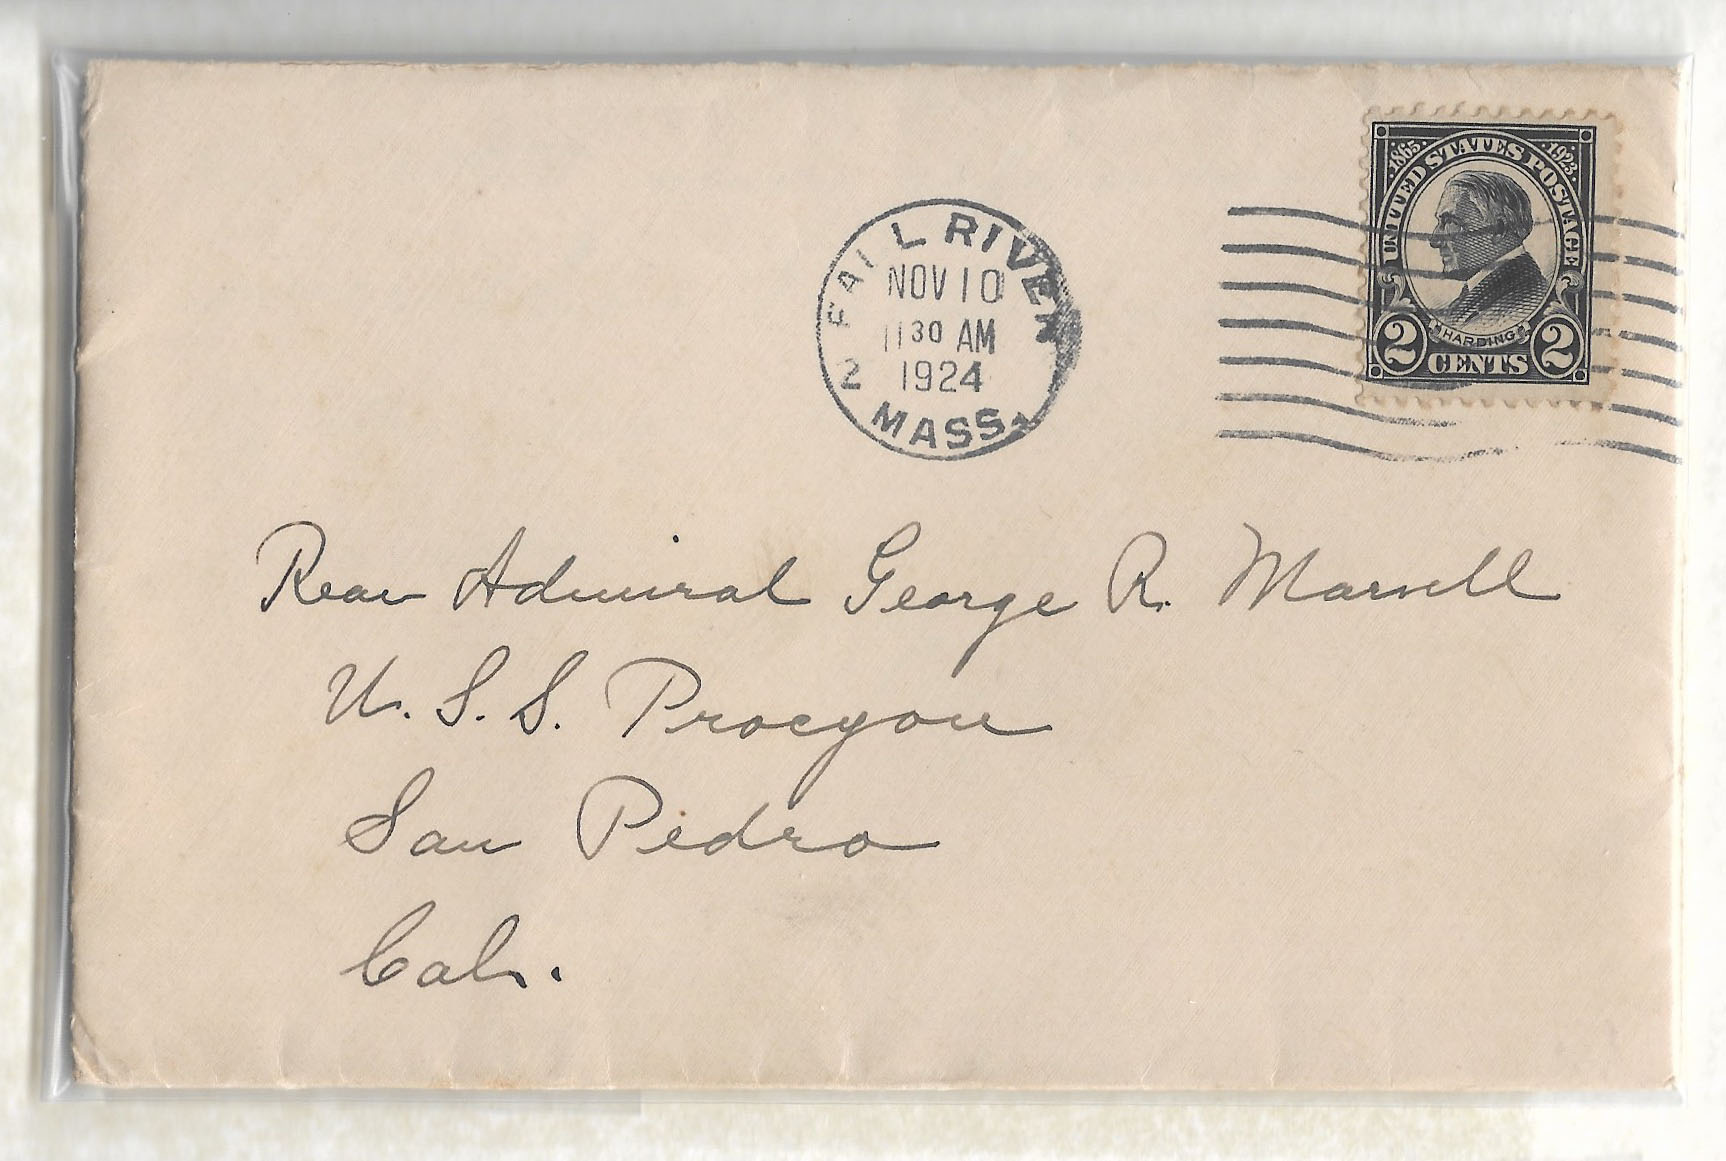 1865. UNITED STATES POSTAGE .1923.
HARDING
2 CENTS 2
FALL RIVER
NOV 10
11 30 AM
1924
2 MASS.
Rear Admiral George R. Marvell
U. S. S. Procyon
San Pedro
Cal.